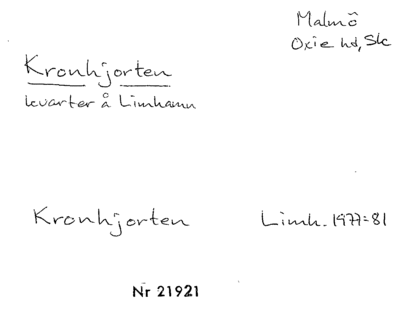 Malmö
Oxie hd, Sk
Kronhjorten
kvarter å Limhamn
Kronhjorten Limh. 1977:81
Nr 21921